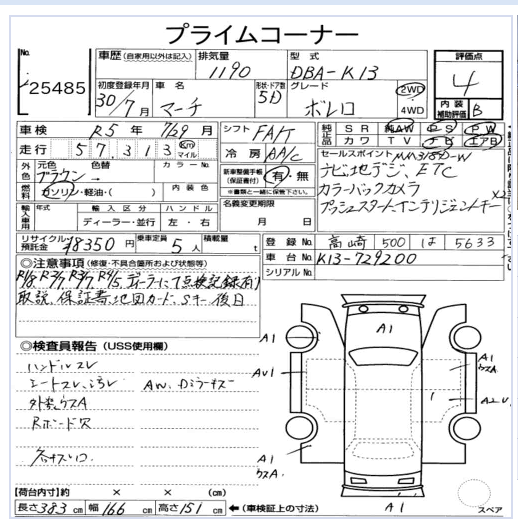 プライムコーナー
No. 25485
車歴 (自家用以外は記入) 排気量 1190 型式 DBA-K13 評価点 4
初度登録年月 30/7月 車名 マーチ 形状・ドア数 5D グレード ボレロ 2WD 4WD 内装補助評価 B
車検 R5年 7/29月 シフト FA/T 純正品 SR AW PS PW
走行 57,313 Km マイル 冷房 AA/C カワ TV ナビ エアB
外色 元色 ブラウン 色替 カラーNo. 新車整備手帳(保証書付) 有・無 セールスポイント MM318D-W
※書類と一緒に保管下さい。 ナビ地デジ、ETC
燃料 ガソリン・軽油・( ) 内装色 カラーバックカメラ
輸入車用 年式 輸入区分 ハンドル 名義変更期限 プッシュスタートインテリジェントキー×2
ディーラー・並行 左・右 月 日
リサイクル預託金 ¥8350円 乗車定員 5人 積載量 t 登録No. 高崎 500 は 5633
◎注意事項(修復・不具合箇所および状態等) 車台No. K13-729200
シリアルNo.
R1/8. R2/7. R3/7. R4/5. ディーラーにて点検記録有り
取説、保証書、地図カード、Sキー後日
◎検査員報告 (USS使用欄)
ハンドルスレ
シートスレ、汚レ AW、Dミラーキズ
外装ウスA
Rボード穴
A1
A1
AU1
A1 ウスA
A2 U
A1 ウスA.
A1
【荷台内寸】約 × × (cm)
長さ383cm 幅166cm 高さ151cm ←(車検証上の寸法) スペア